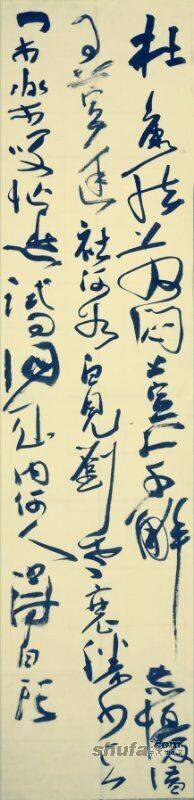 杜康能散悶萱草解忘憂借
問萱逢杜何如白見劉老衰勝少夭
閑樂笑忙愁試問同年内何人得白頭
shufa